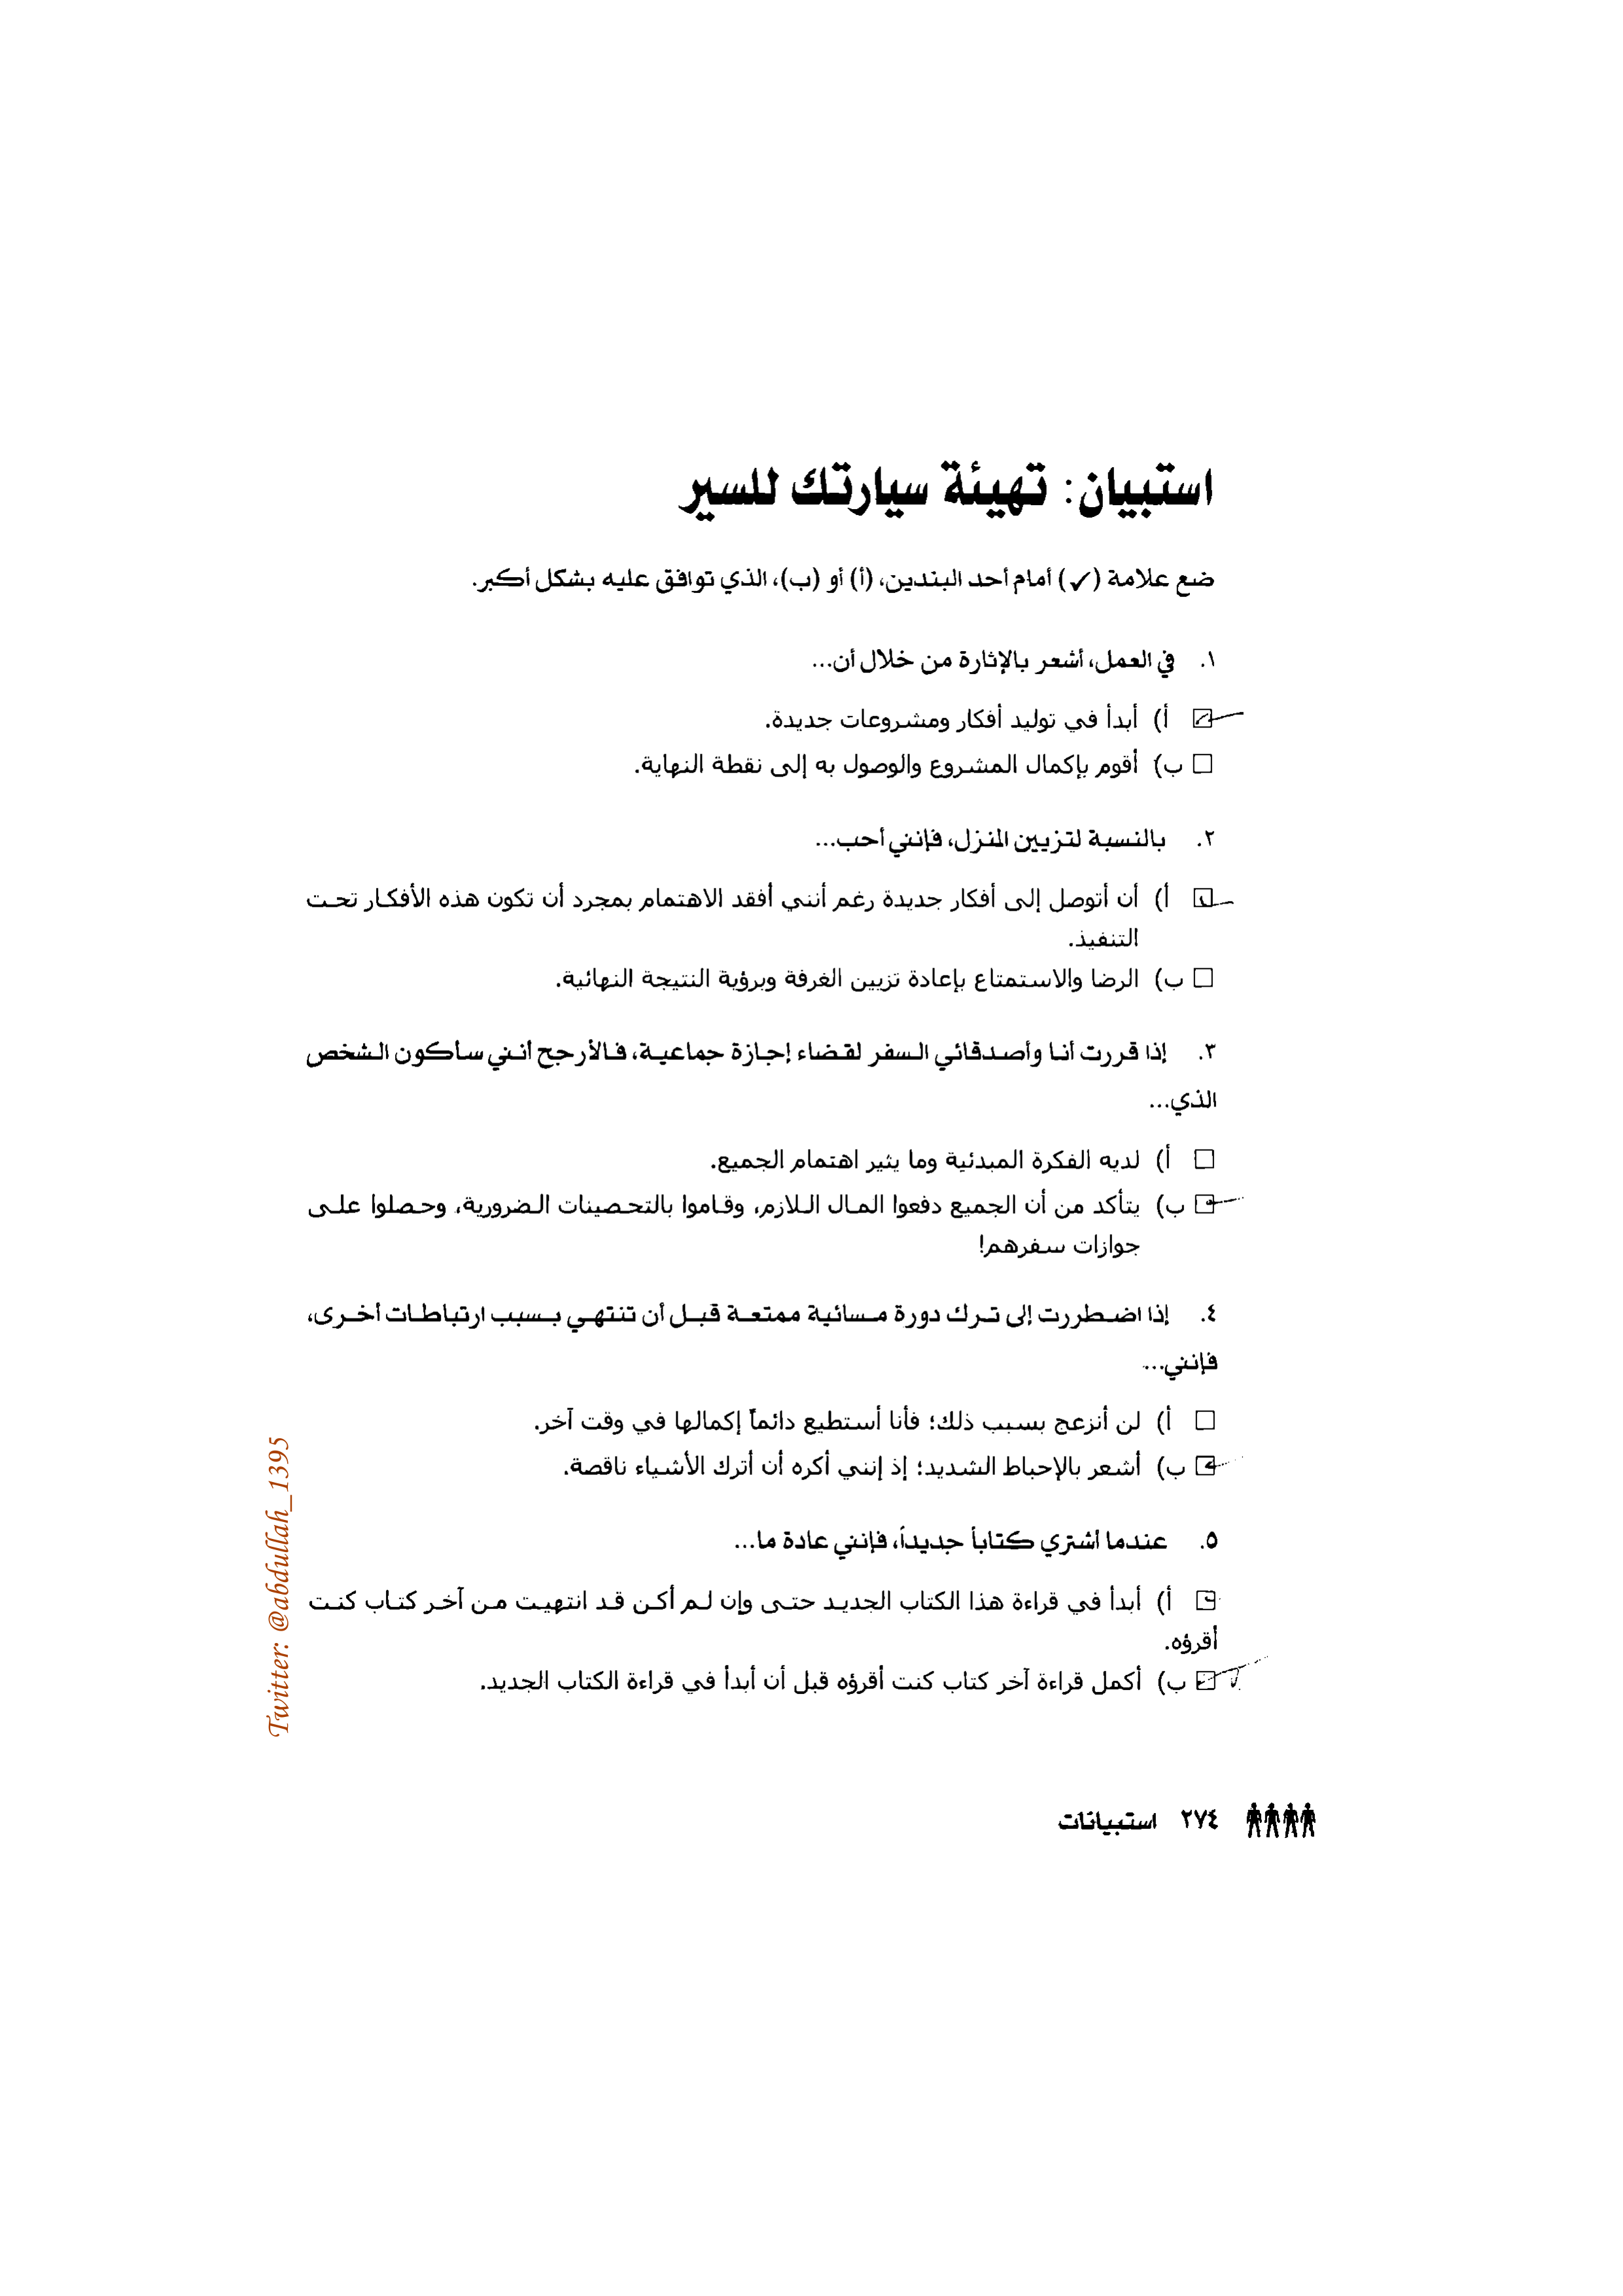 استبيان: تهيئة سيارتك للسير
ضع علامة (✓) أمام أحد البندين، (أ) أو (ب)، الذي توافق عليه بشكل أكبر.
١. في العمل، أشعر بالإثارة من خلال أن...
☑ أ) أبدأ في توليد أفكار ومشروعات جديدة.
☐ ب) أقوم بإكمال المشروع والوصول به إلى نقطة النهاية.
٢. بالنسبة لتزيين المنزل، فإنني أحب...
☑ أ) أن أتوصل إلى أفكار جديدة رغم أنني أفقد الاهتمام بمجرد أن تكون هذه الأفكار تحت
التنفيذ.
☐ ب) الرضا والاستمتاع بإعادة تزيين الغرفة وبرؤية النتيجة النهائية.
٣. إذا قررت أنا وأصدقائي السفر لقضاء إجازة جماعية، فالأرجح أنني سأكون الشخص
الذي...
☐ أ) لديه الفكرة المبدئية وما يثير اهتمام الجميع.
☑ ب) يتأكد من أن الجميع دفعوا المال اللازم، وقاموا بالتحصينات الضرورية، وحصلوا على
جوازات سفرهم!
٤. إذا اضطررت إلى ترك دورة مسائية ممتعة قبل أن تنتهي بسبب ارتباطات أخرى،
فإنني...
☐ أ) لن أنزعج بسبب ذلك؛ فأنا أستطيع دائماً إكمالها في وقت آخر.
☑ ب) أشعر بالإحباط الشديد؛ إذ إنني أكره أن أترك الأشياء ناقصة.
٥. عندما أشتري كتاباً جديداً، فإنني عادة ما...
☑ أ) أبدأ في قراءة هذا الكتاب الجديد حتى وإن لم أكن قد انتهيت من آخر كتاب كنت
أقرؤه.
☑ ب) أكمل قراءة آخر كتاب كنت أقرؤه قبل أن أبدأ في قراءة الكتاب الجديد.
Twitter: @abdullah_1395
٢٧٤ استبيانات